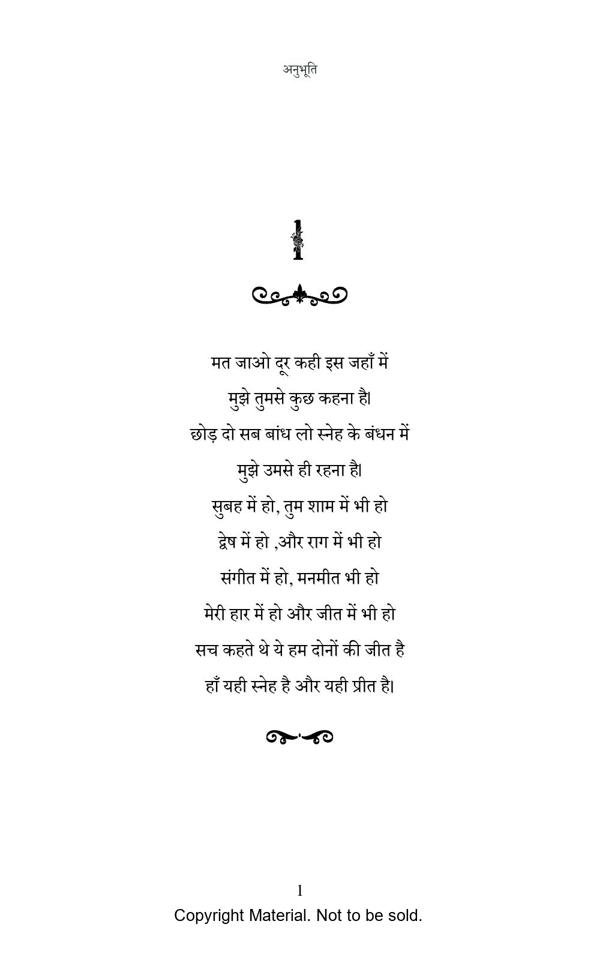 अनुभूति
1
मत जाओ दूर कही इस जहाँ में
मुझे तुमसे कुछ कहना है।
छोड़ दो सब बांध लो स्नेह के बंधन में
मुझे उमसे ही रहना है।
सुबह में हो, तुम शाम में भी हो
द्वेष में हो ,और राग में भी हो
संगीत में हो, मनमीत भी हो
मेरी हार में हो और जीत में भी हो
सच कहते थे ये हम दोनों की जीत है
हाँ यही स्नेह है और यही प्रीत है।
1
Copyright Material. Not to be sold.